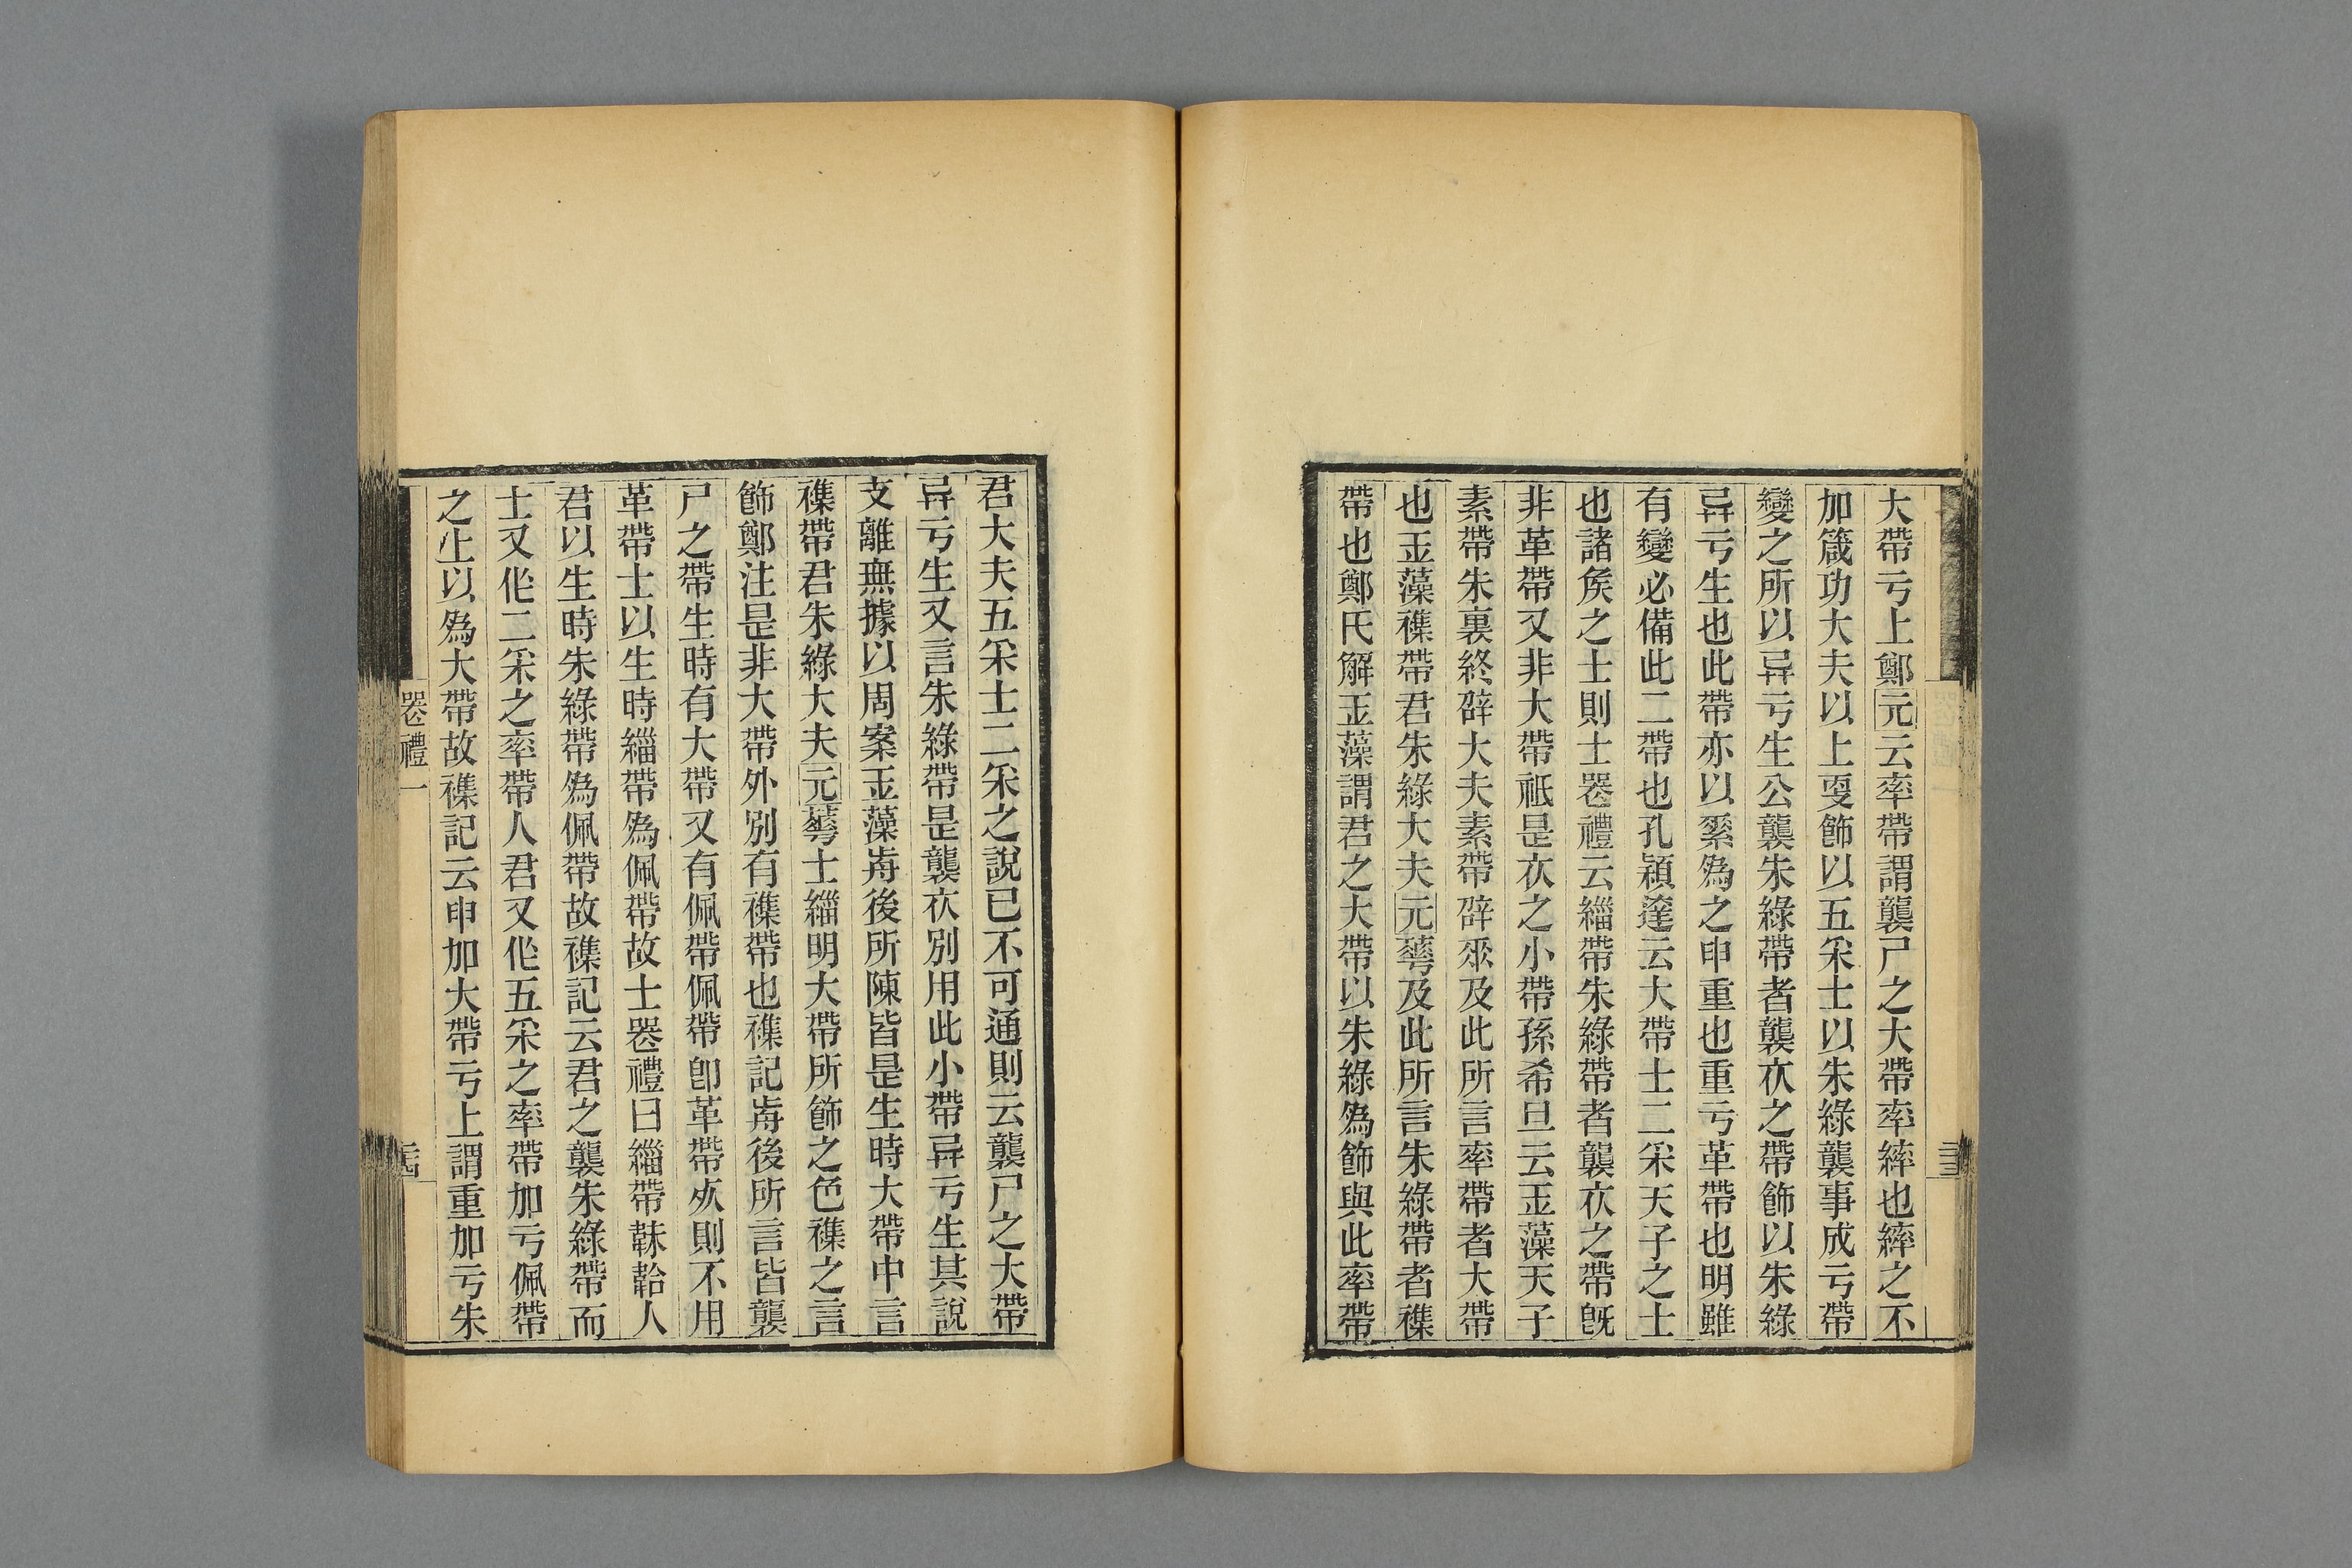 大帶亏上鄭元云率帶謂襲尸之大帶率繂也繂之不
加箴功大夫以上㪅飾以五采士以朱綠襲事成亏帶
變之所以异亏生公襲朱綠帶者襲衣之帶飾以朱綠
异亏生也此帶亦以素爲之申重也重亏革帶也明雖
有變必備此二帶也孔穎達云大帶士二采天子之士
也諸矦之士則士喪禮云緇帶朱綠帶者襲衣之帶旣
非革帶又非大帶祇是衣之小帶孫希旦云玉藻天子
素帶朱裏終辟大夫素帶辟𠂹及此所言率帶者大帶
也玉藻襍帶君朱綠大夫元蕐及此所言朱綠帶者襍
帶也鄭氏解玉藻謂君之大帶以朱綠爲飾與此率帶
君大夫五采士二采之說已不可通則云襲尸之大帶
异亏生又言朱綠帶是襲衣別用此小帶异亏生其說
支離無據以周案玉藻歬後所陳皆是生時大帶中言
襍帶君朱綠大夫元蕐士緇明大帶所飾之色襍之言
飾鄭注是非大帶外別有襍帶也襍記歬後所言皆襲
尸之帶生時有大帶又有佩帶佩帶卽革帶𣦸則不用
革帶士以生時緇帶爲佩帶故士喪禮曰緇帶韎韐人
君以生時朱綠帶爲佩帶故襍記云君之襲朱綠帶而
士又作二采之率帶人君又作五采之率帶加亏佩帶
之上以爲大帶故襍記云申加大帶亏上謂重加亏朱
喪禮一